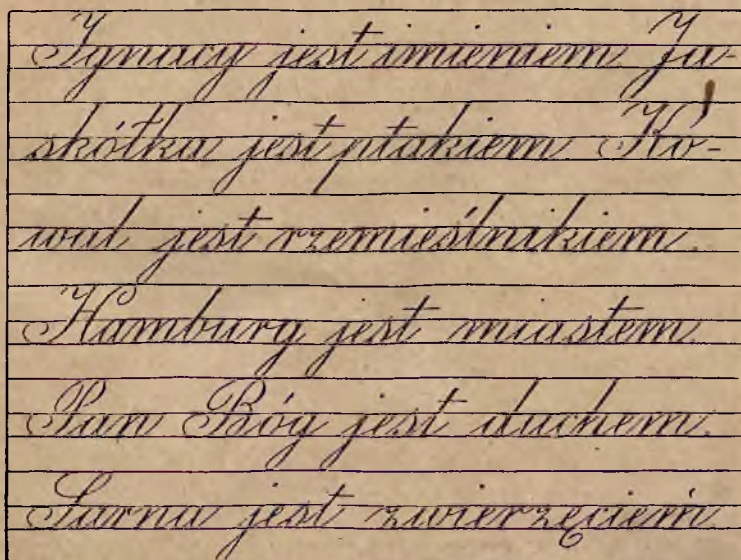 Ignacy jest imieniem Ja-
skółka jest ptakiem. Ko-
wal jest rzemieślnikiem.
Hamburg jest miastem.
Pan Bóg jest duchem.
Sarna jest zwierzęciem